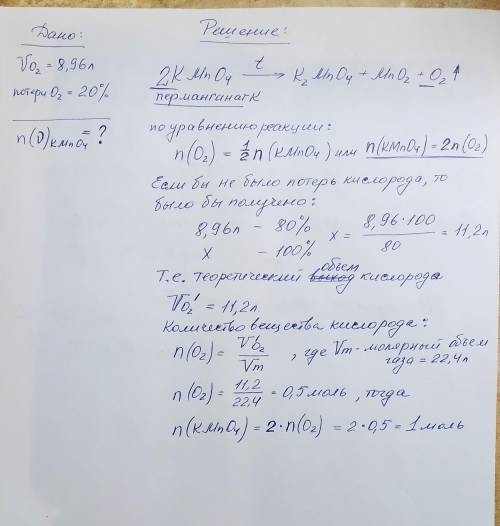 Дано:
V O₂ = 8,96 л
потери O₂ = 20%
n(υ) KMnO₄ = ?
Решение:
2KMnO₄ —t→ K₂MnO₄ + MnO₂ + O₂↑
перманганат K
по уравнению реакции:
n(O₂) = ½ n(KMnO₄) или n(KMnO₄) = 2n(O₂)
Если бы не было потерь кислорода, то
было бы получено:
8,96л – 80%
x – 100%
x = 8,96·100 / 80 = 11,2л
Т.е. теоретический объем кислорода
V O₂' = 11,2л.
Количество вещества кислорода:
n(O₂) = V O₂ / Vm , где Vm – молярный объем
газа = 22,4л
n(O₂) = 11,2 / 22,4 = 0,5 моль , тогда
n(KMnO₄) = 2·n(O₂) = 2·0,5 = 1 моль